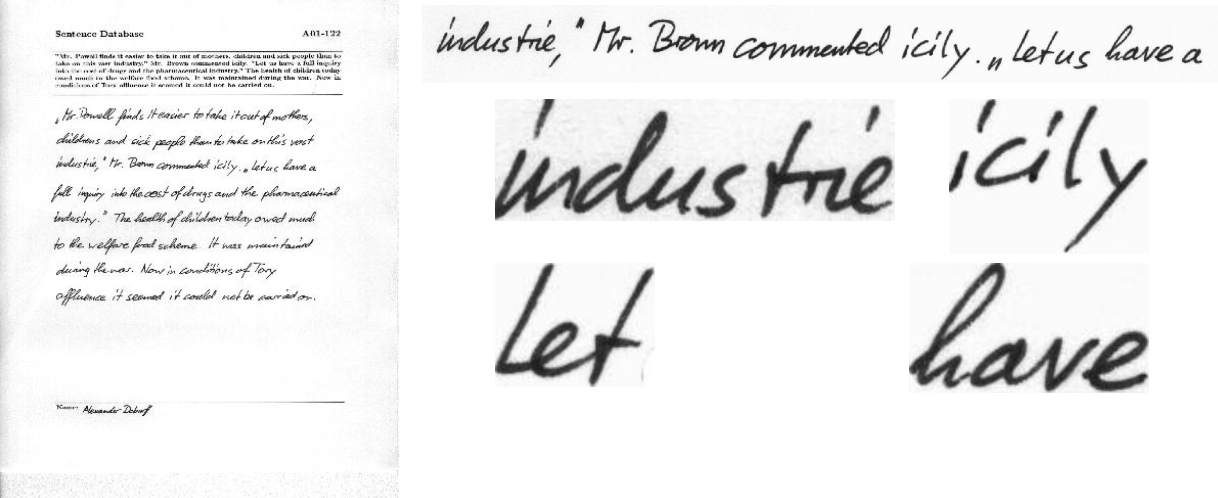 Sentence Database A01-122
"Mr. Powell finds it easier to take it out of mothers, children and sick people than to
take on this vast industry," Mr. Brown commented icily. "Let us have a full inquiry
into the cost of drugs and the pharmaceutical industry." The health of children today
owed much to the welfare food scheme. It was maintained during the war. Now in
conditions of Tory affluence it seemed it could not be carried on.
„Mr. Powell finds it easier to take it out of mothers,
childrens and sick people than to take on this vast
industrie," Mr. Brown commented icily. „Let us have a
full inquiry into the cost of drugs and the pharmaceutical
industry." The health of children today owed much
to the welfare food scheme. It was maintained
during the war. Now in conditions of Tory
affluence it seemed it could not be carried on.
Name: Alexander
industrie," Mr. Brown commented icily. „Let us have a
industrie icily
Let have